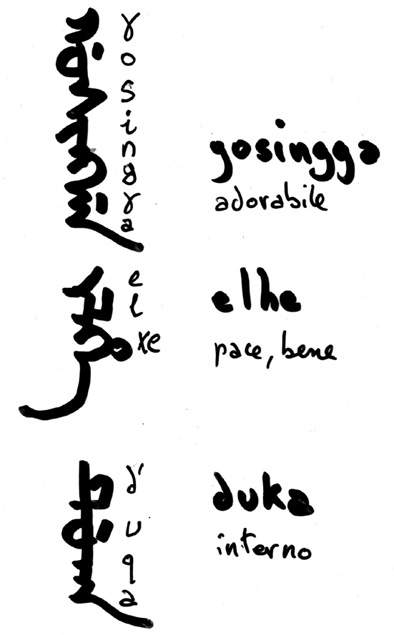 ᡤᠣᠰᡳᠩᡤᠠ
γosingγa
gosingga
adorabile
ᡝᠯᡥᡝ
elxe
elhe
pace, bene
ᡩᡠᡴᠠ
d'uqa
duka
interno